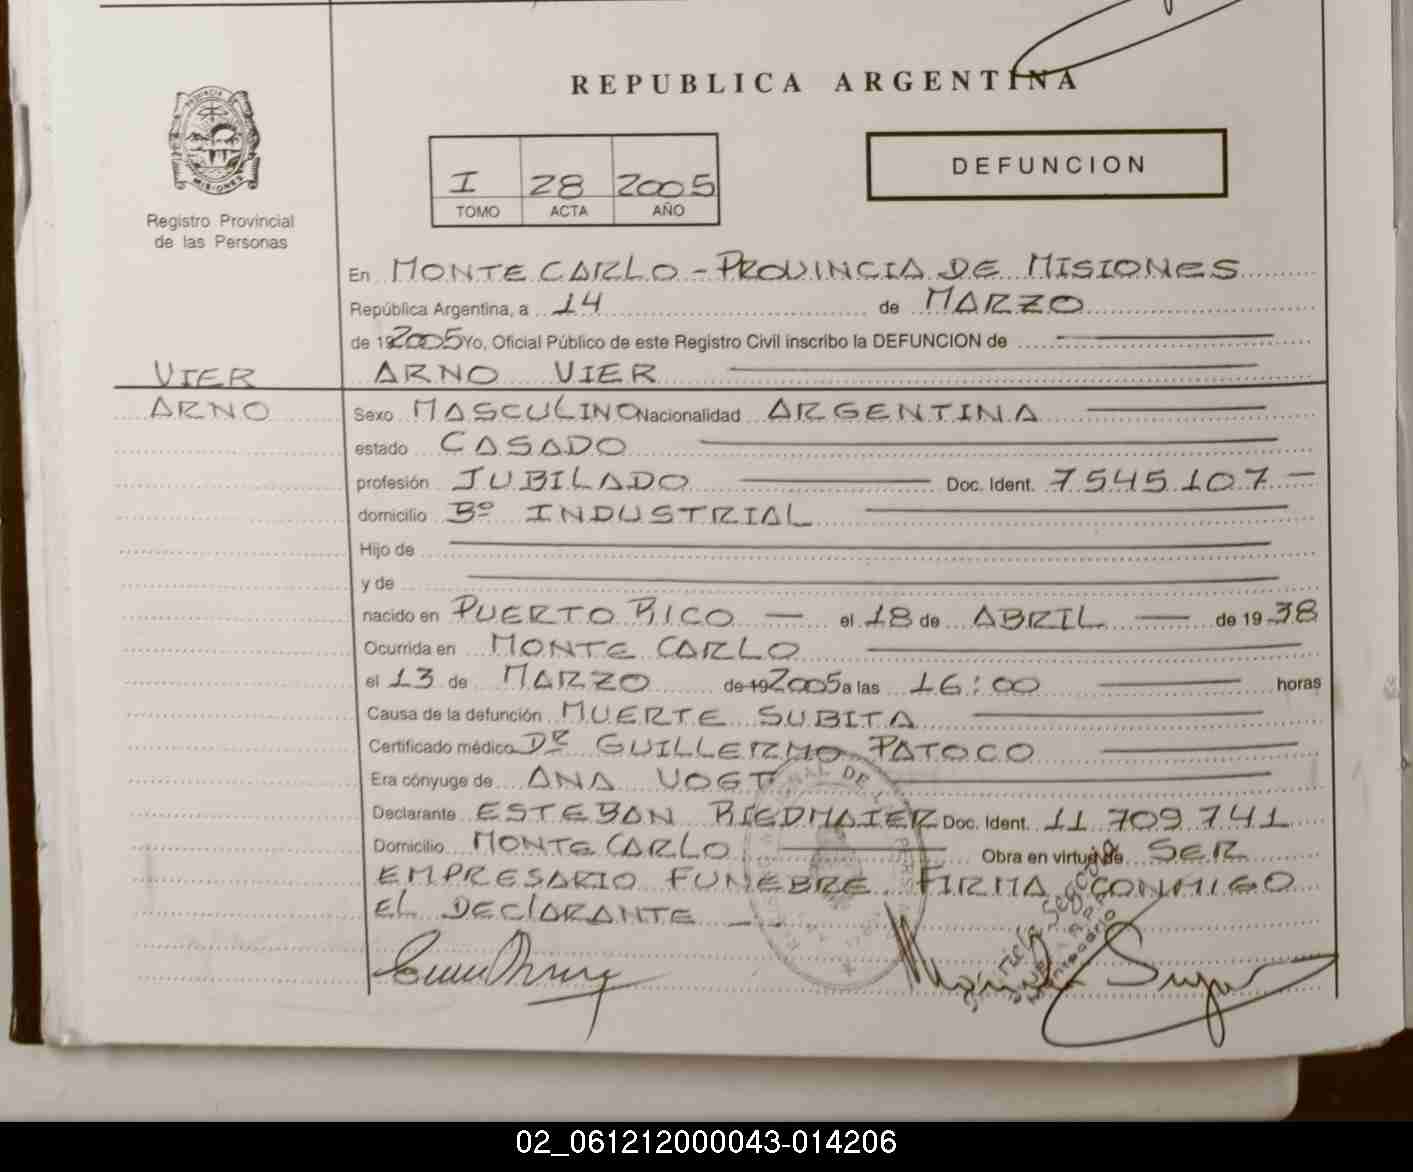 REPUBLICA ARGENTINA
PROVINCIA DE
MISIONES
Registro Provincial
de las Personas
I 28 2005
TOMO ACTA AÑO
DEFUNCION
En MONTECARLO - PROVINCIA DE MISIONES
República Argentina, a 14 de MARZO
de 192005 Yo, Oficial Público de este Registro Civil inscribo la DEFUNCION de
VIER ARNO VIER
ARNO Sexo MASCULINO Nacionalidad ARGENTINA
estado CASADO
profesión JUBILADO Doc. Ident. 7545107
domicilio Bº INDUSTRIAL
Hijo de
y de
nacido en PUERTO RICO el 18 de ABRIL de 19 38
Ocurrida en MONTE CARLO
el 13 de MARZO de 19 2005 a las 16:00 horas
Causa de la defunción MUERTE SUBITA
Certificado médico DR GUILLERMO PATOCO
Era cónyuge de ANA VOGT
Declarante ESTEBAN RIEDMAIER Doc. Ident. 11 709 741
Domicilio MONTE CARLO Obra en virtud de SER
EMPRESARIO FUNEBRE FIRMA CONMIGO
EL DEClARANTE
02_061212000043-014206